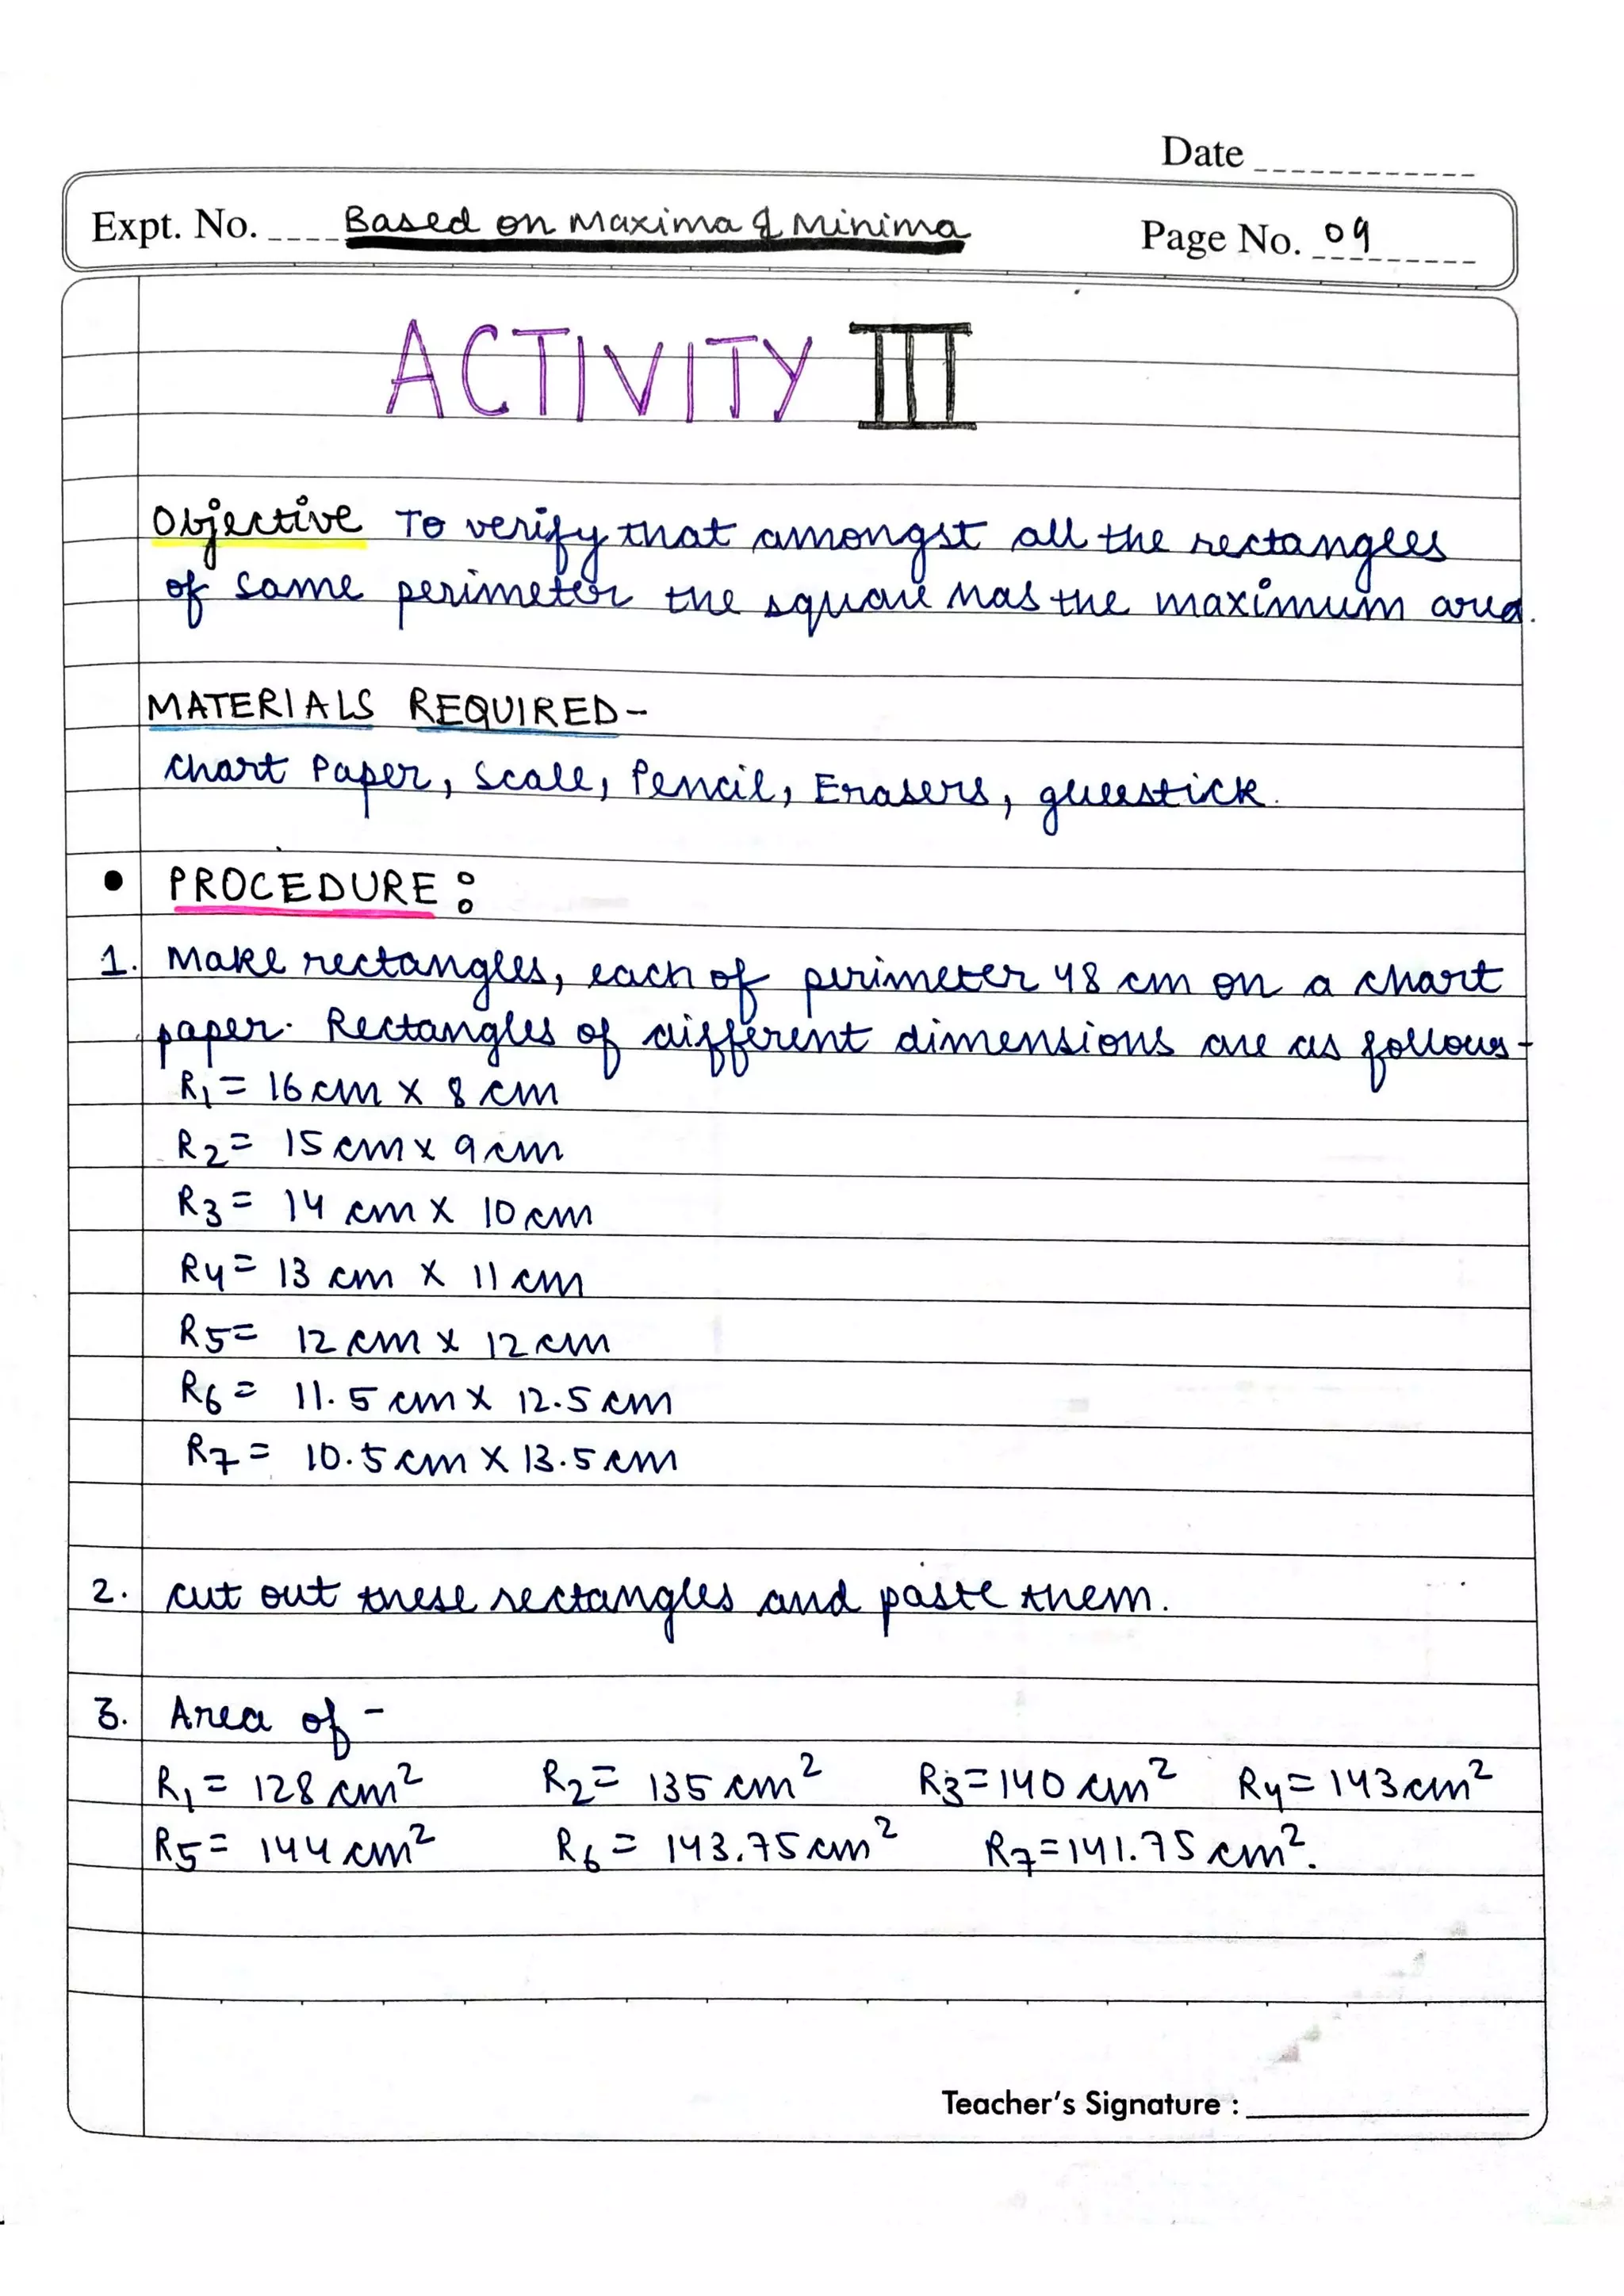 Date
Expt. No. Based on Maxima & Minima
Page No. 09
ACTIVITY III
Objective To verify that amongst all the rectangles
of same perimeter the square has the maximum area.
MATERIALS REQUIRED-
Chart Paper, Scale, Pencil, Erasers, gluestick.
• PROCEDURE :
1. Make rectangles, each of perimeter 48 cm on a chart
paper. Rectangles of different dimensions are as follows-
R1 = 16 cm x 8 cm
R2 = 15 cm x 9 cm
R3 = 14 cm x 10 cm
R4 = 13 cm x 11 cm
R5 = 12 cm x 12 cm
R6 = 11.5 cm x 12.5 cm
R7 = 10.5 cm x 13.5 cm
2. cut out these rectangles and paste them.
3. Area of -
R1 = 128 cm² R2 = 135 cm² R3 = 140 cm² R4 = 143 cm²
R5 = 144 cm² R6 = 143.75 cm² R7 = 141.75 cm².
Teacher's Signature :